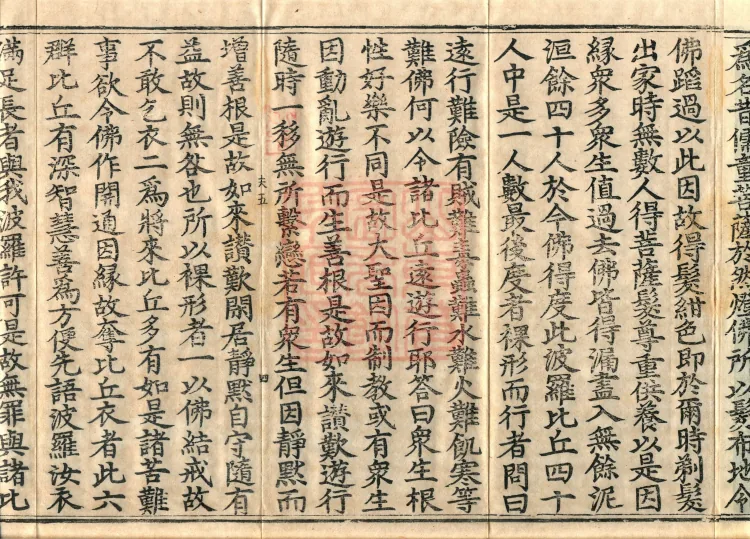 為名昔儒童菩薩於然燈佛所以髮布地令
佛蹈過以此因故得髮紺色即於爾時剃髮
出家時無數人得菩薩髮尊重供養以是因
緣衆多衆生值過去佛皆得漏盡入無餘泥
洹餘四十人於今佛得度此波羅比丘四十
人中是一人數最後度者裸形而行者問曰
遠行難險有賊難毒蟲難水難火難飢寒等
難佛何以令諸比丘遠遊行耶答曰衆生根
性好樂不同是故大聖因而制教或有衆生
因動亂遊行而生善根是故如來讃歎遊行
隨時一移無所繫戀若有衆生但因靜默而
夫五
四
增善根是故如來讃歎閑居靜默自守隨有
益故則無咎也所以裸形者一以佛結戒故
不敢乞衣二為將來比丘多有如是諸苦難
事欲令佛作開通因緣故奪比丘衣者此六
群比丘有深智慧善為方便先語波羅汝衣
滿足長者與我波羅許可是故無罪與諸比